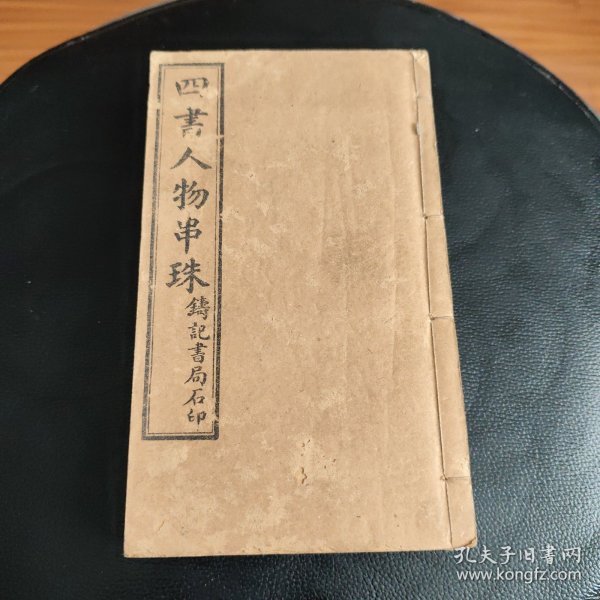 四書人物串珠
鑄記書局石印
孔夫子旧書网
www.kongfz.com